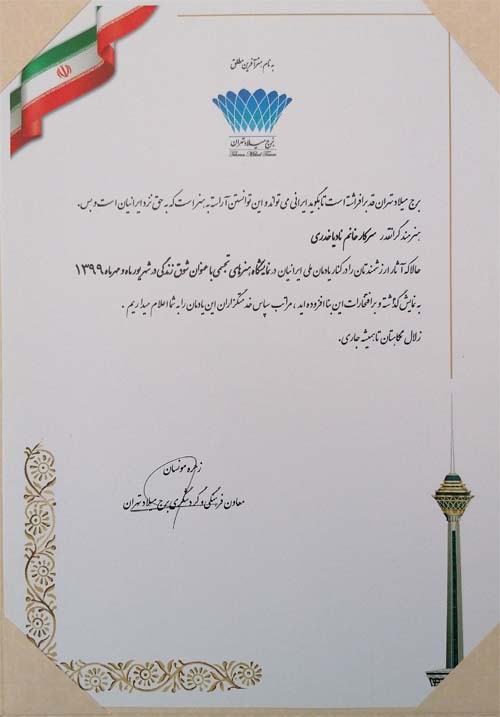 به نام هنرآفرین مطلق
برج میلاد تهران
Tehran Milad Tower
برج میلاد تهران قد برافراشته است تا بگوید ایرانی می تواند و این توانستن آراسته به هنر است که به حق نزد ایرانیان است و بس.
هنرمند گرانقدر سرکار خانم نادیا خدری
حالا که آثار ارزشمندتان را در کنار یادمان ملی ایرانیان در نمایشگاه هنرهای تجسمی با عنوان شوق زندگی در شهریور ماه و مهر ماه ۱۳۹۹
به نمایش گذاشته و بر افتخارات این بنا افزوده اید ، مراتب سپاس خدمتگزاران این یادمان را به شما اعلام میداریم .
زلال نگاهتان تا همیشه جاری.
زهره مونسان
معاون فرهنگی و گردشگری برج میلاد تهران